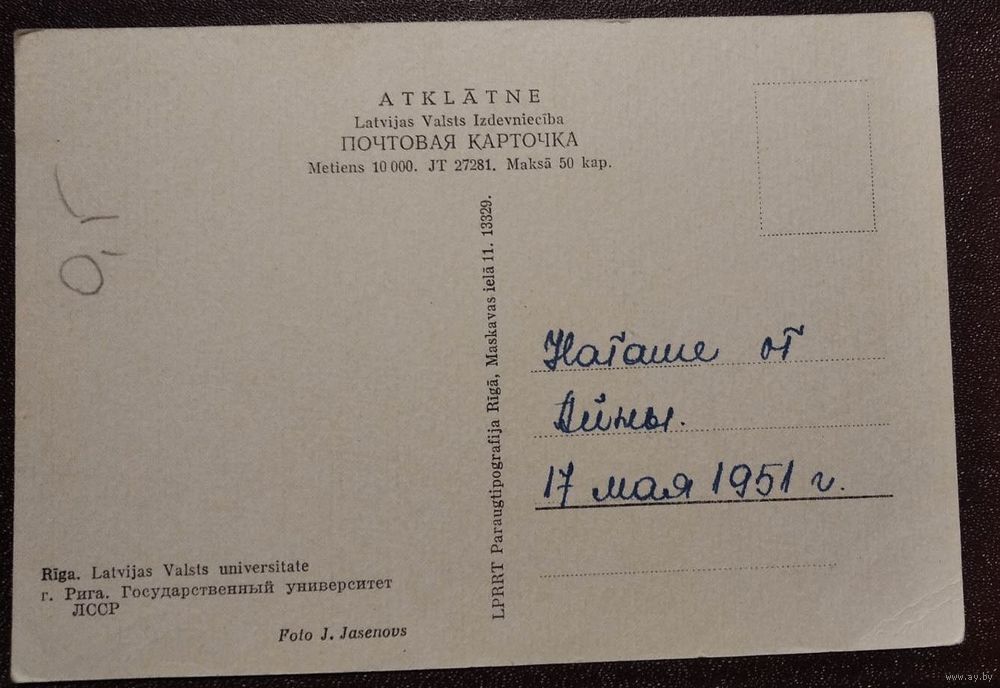 ATKLĀTNE
Latvijas Valsts Izdevniecība
ПОЧТОВАЯ КАРТОЧКА
Metiens 10 000. JT 27281. Maksā 50 kap.
0,5
LPRRT Paraugtipografija Rīgā, Maskavas ielā 11. 13329.
Наташе от
Айны.
17 мая 1951 г.
Rīga. Latvijas Valsts universitate
г. Рига. Государственный университет
ЛССР
Foto J. Jasenovs
www.ay.by